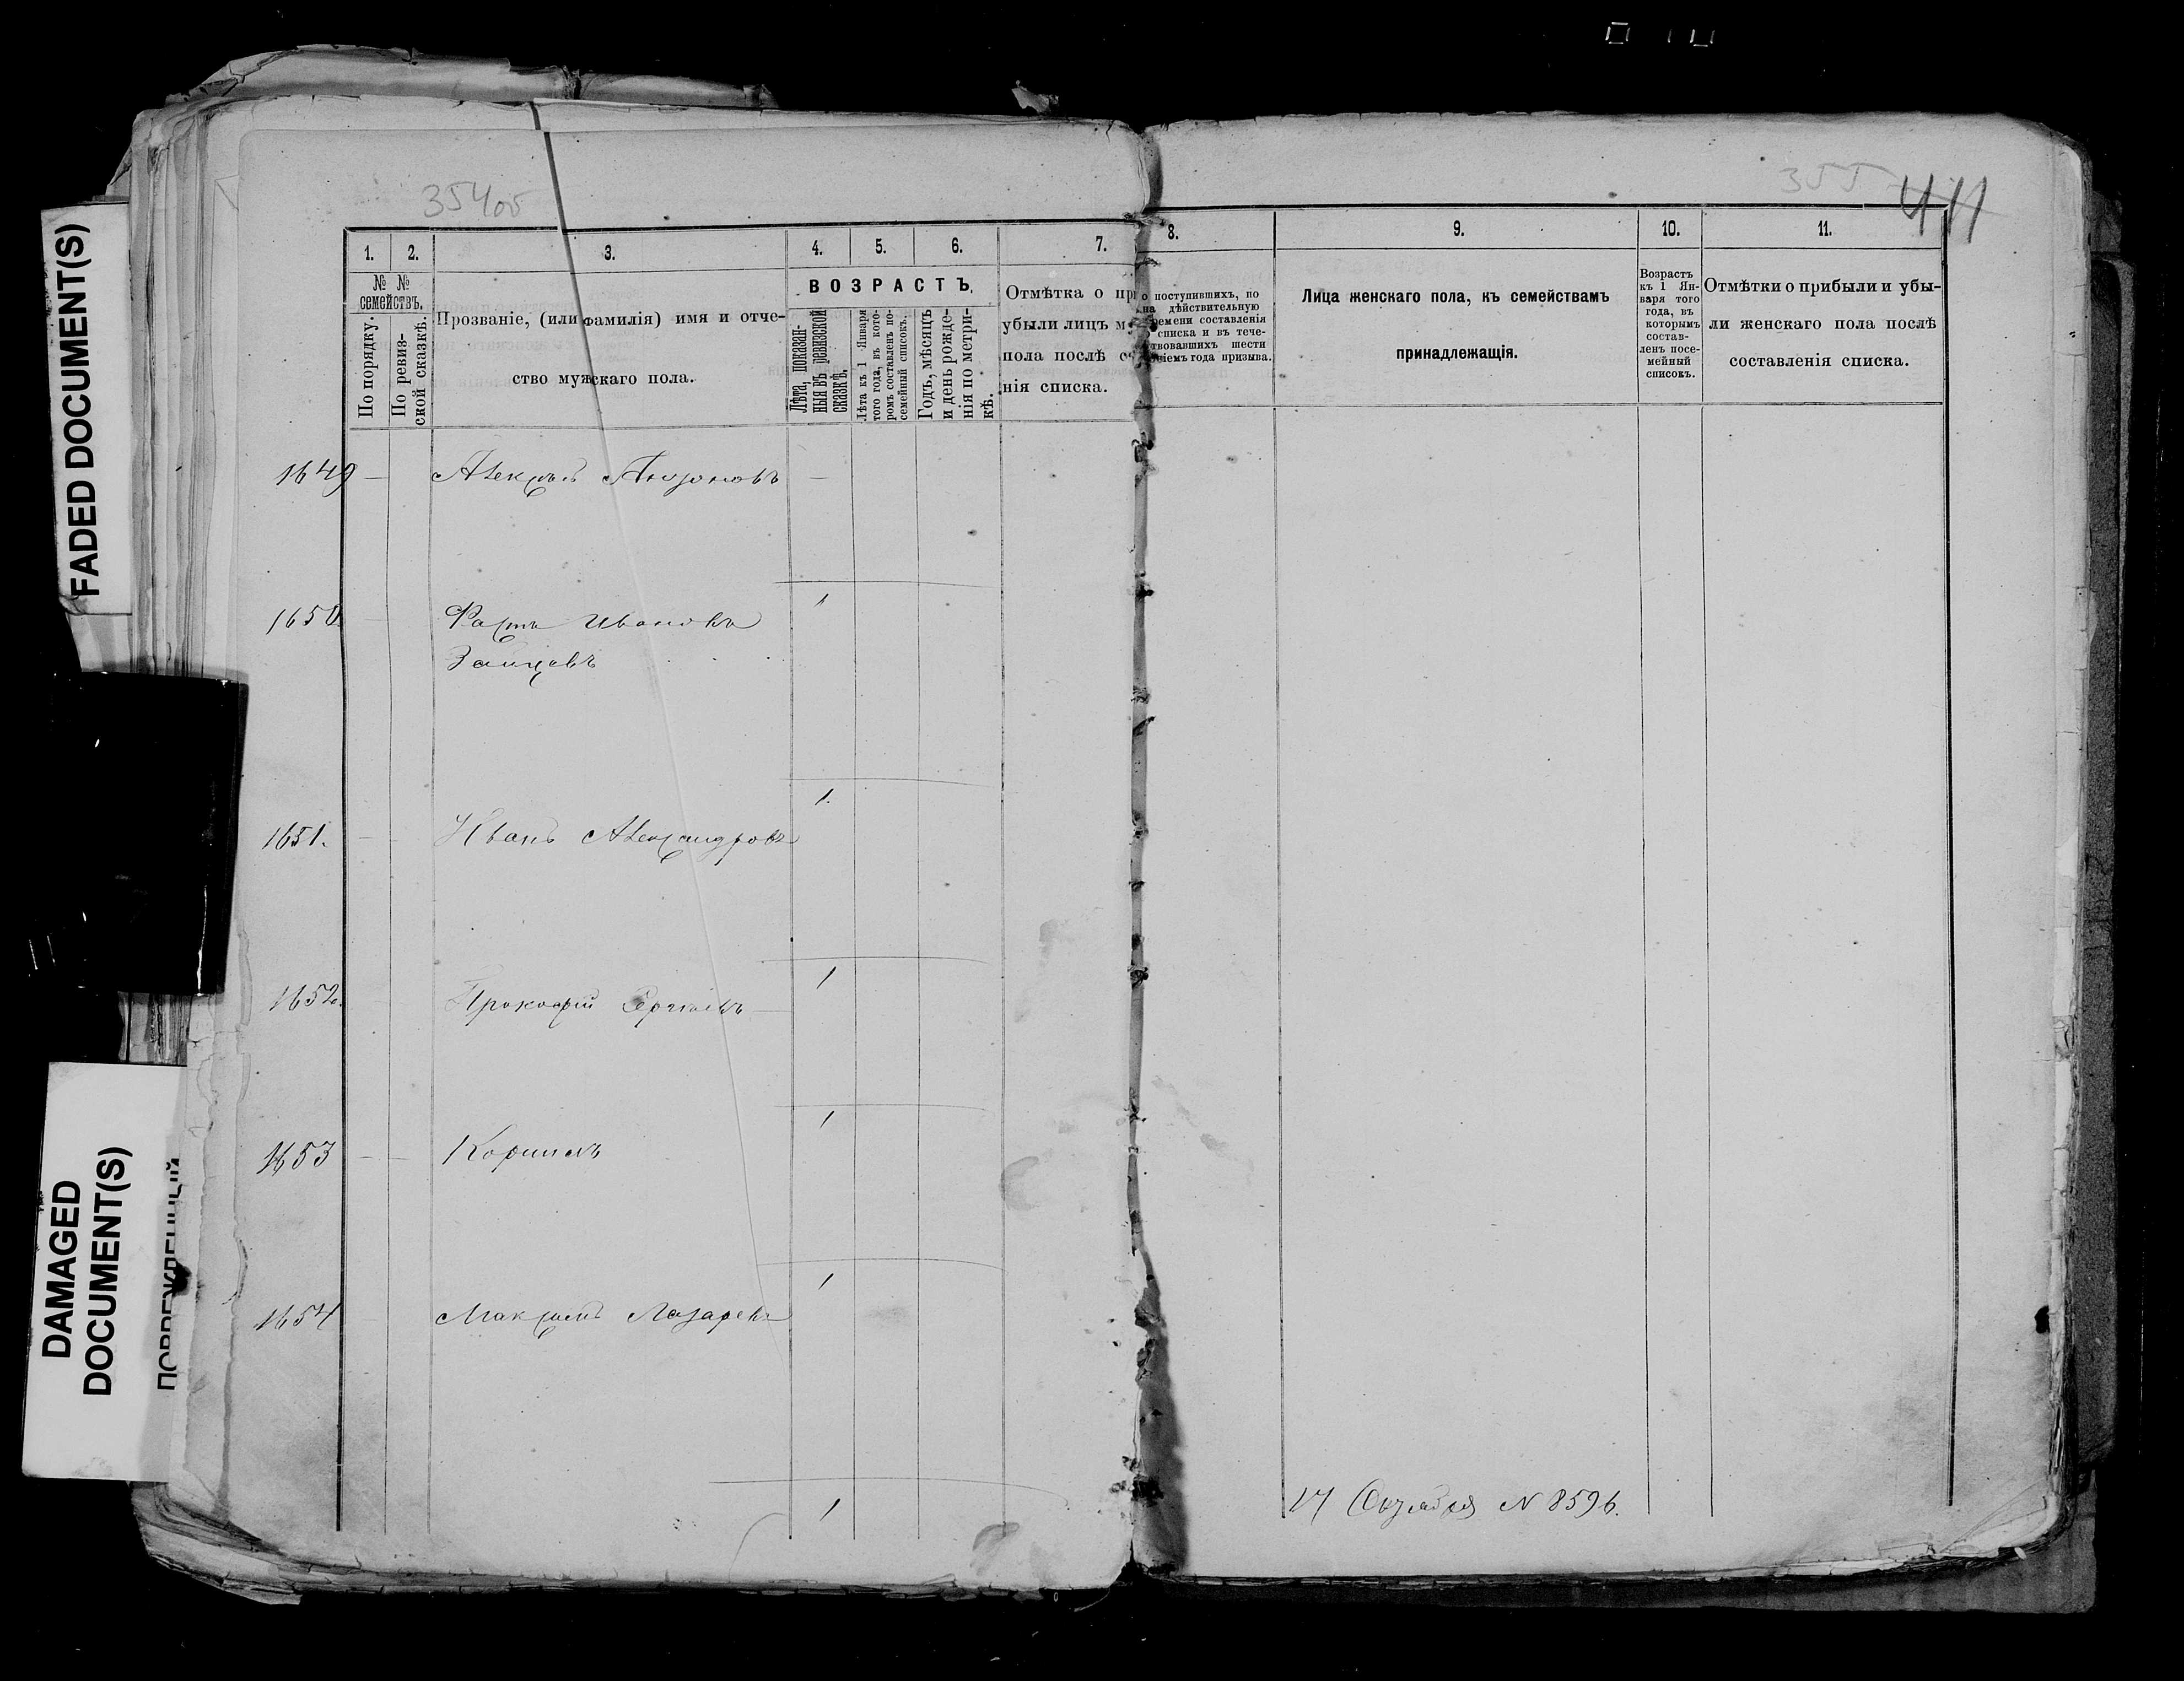 FADED DOCUMENT(S)
DAMAGED
DOCUMENT(S)
354об
1.
2.
3.
4.
5.
6.
7.
№ №
семействъ.
По порядку.
По ревиз-
ской сказкѣ.
Прозваніе, (или фамилія) имя и отче-
ство мужскаго пола.
ВОЗРАСТЪ.
Лѣта, показан-
ныя въ ревизской
сказкѣ.
Лѣта къ 1 Января
того года, въ кото-
ромъ составленъ по-
семейный списокъ.
Годъ, мѣсяцъ
и день рожде-
нія по метри-
кѣ.
Отмѣтка о
убыли лицъ
пола послѣ
нія списка.
1649 — Алексѣй Антоновъ —
1650 Иванова
Зайцевъ
1
1651. — Иванъ Александровъ
1.
1652. Прокофій Сергѣевъ —
1
1653 — —
1
1654 Максимъ Лазаревъ
1
1
355
411
8.
9.
10.
11.
о поступившихъ, по
на дѣйствительную
времени составленія
списка и въ тече-
ствовавшихъ шести
года призыва.
Лица женскаго пола, къ семействамъ
принадлежащія.
Возрастъ
къ 1 Ян-
варя того
года, въ
которымъ
состав-
ленъ посе-
мейный
списокъ.
Отмѣтки о прибыли и убы-
ли женскаго пола послѣ
составленія списка.
17 Октября № 8596.